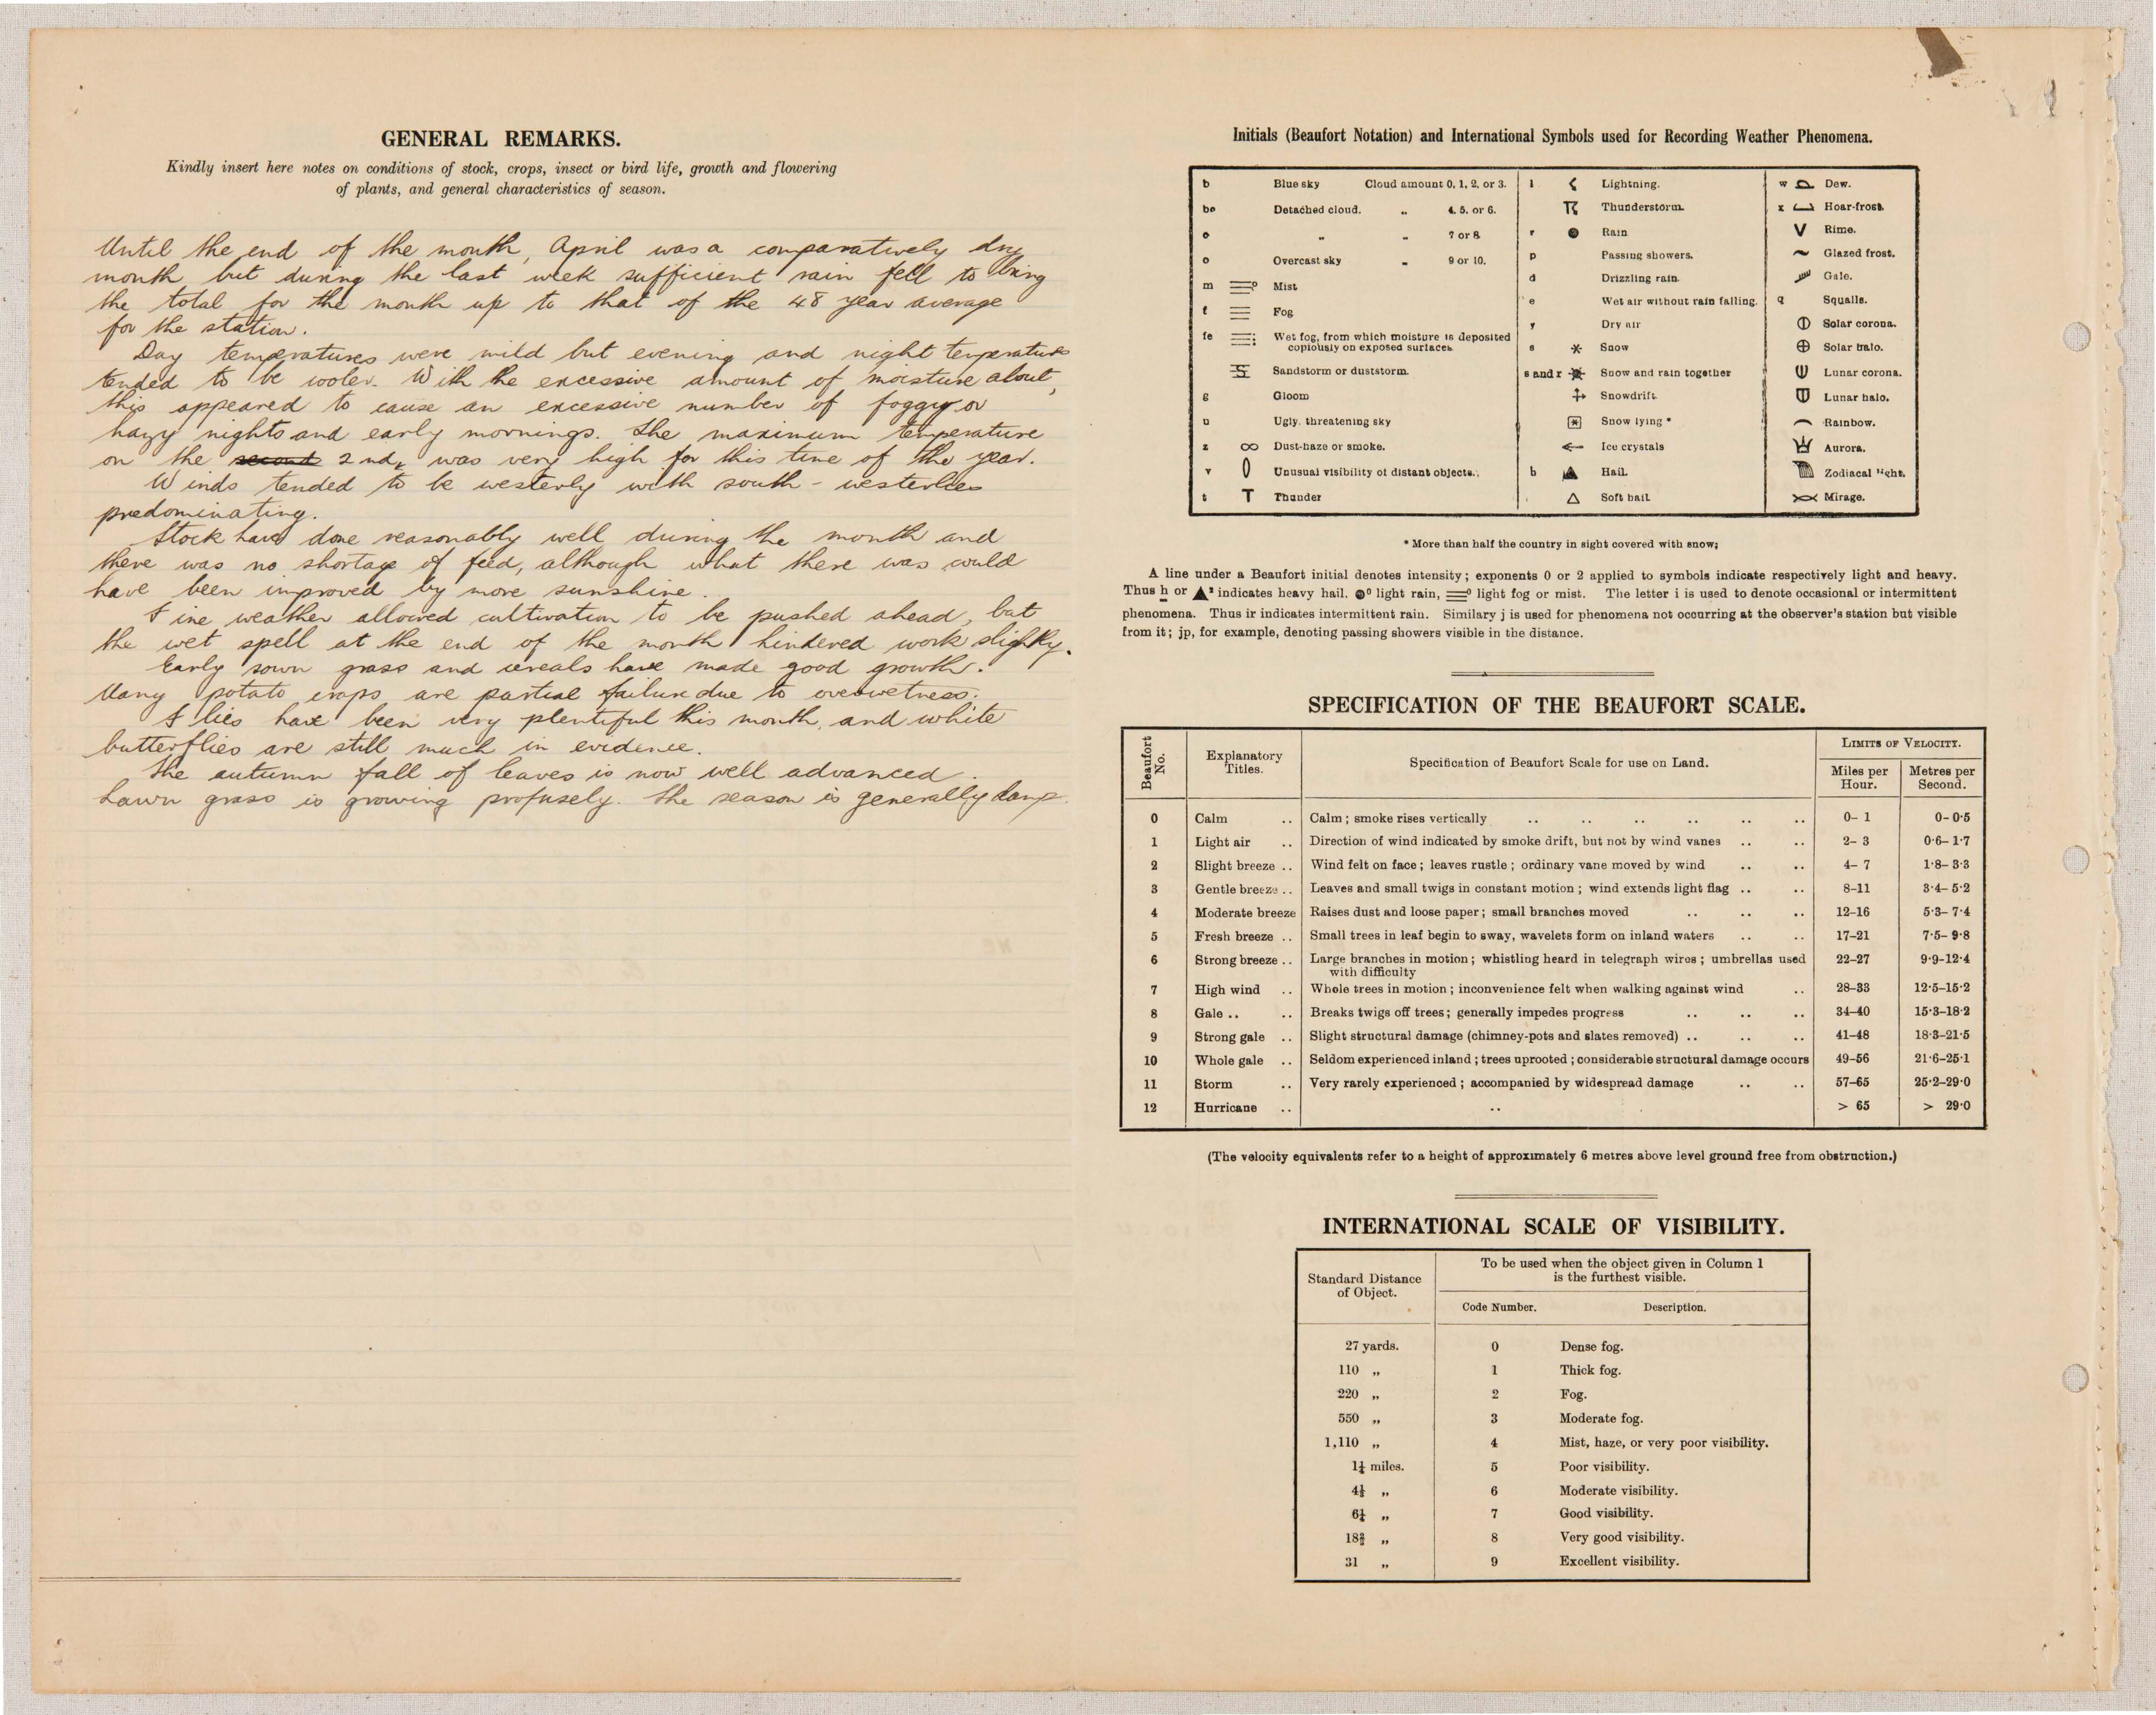 GENERAL REMARKS.
Kindly insert here notes on conditions of stock, crops, insect or bird life, growth and flowering
of plants, and general characteristics of season.
Until the end of the month, April was a comparatively dry
month but during the last week sufficient rain fell to bring
the total for the month up to that of the 48 year average
for the station.
Day temperatures were mild but evening and night temperatures
tended to be cooler. With the excessive amount of moisture about,
this appeared to cause an excessive number of foggy or
hazy nights and early mornings. The maximum temperature
on the second 2nd, was very high for this time of the year.
Winds tended to be westerly with south-westerlies
predominating.
Stock have done reasonably well during the month and
there was no shortage of feed, although what there was could
have been improved by more sunshine.
Fine weather allowed cultivation to be pushed ahead, but
the wet spell at the end of the month hindered work slightly.
Early sown grass and cereals have made good growth.
Many potato crops are partial failure due to overwetness.
Flies have been very plentiful this month, and white
butterflies are still much in evidence.
The autumn fall of leaves is now well advanced.
Lawn grass is growing profusely. The season is generally damp.
Initials (Beaufort Notation) and International Symbols used for Recording Weather Phenomena.
b Blue sky Cloud amount 0, 1, 2, or 3. l Lightning. w Dew.
bc Detached cloud. „ 4, 5, or 6. Thunderstorm. x Hoar-frost.
c „ „ 7 or 8 r Rain Rime.
o Overcast sky „ 9 or 10. p Passing showers. Glazed frost.
m Mist d Drizzling rain. Gale.
f Fog e Wet air without rain falling. q Squalls.
fe Wet fog, from which moisture is deposited y Dry air Solar corona.
copiously on exposed surfaces. s Snow Solar halo.
Sandstorm or duststorm. s and r Snow and rain together Lunar corona.
g Gloom Snowdrift Lunar halo.
u Ugly, threatening sky Snow lying * Rainbow.
z ∞ Dust-haze or smoke. Ice crystals Aurora.
v Unusual visibility of distant objects. h Hail. Zodiacal light.
t T Thunder Soft hail Mirage.
* More than half the country in sight covered with snow;
A line under a Beaufort initial denotes intensity; exponents 0 or 2 applied to symbols indicate respectively light and heavy.
Thus h or ▲² indicates heavy hail. ●⁰ light rain, ≡⁰ light fog or mist. The letter i is used to denote occasional or intermittent
phenomena. Thus ir indicates intermittent rain. Similary j is used for phenomena not occurring at the observer's station but visible
from it; jp, for example, denoting passing showers visible in the distance.
SPECIFICATION OF THE BEAUFORT SCALE.
Beaufort No. Explanatory Titles. Specification of Beaufort Scale for use on Land. LIMITS OF VELOCITY.
Miles per Hour. Metres per Second.
0 Calm .. Calm; smoke rises vertically .. .. .. .. .. .. 0– 1 0– 0·5
1 Light air .. Direction of wind indicated by smoke drift, but not by wind vanes .. .. 2– 3 0·6– 1·7
2 Slight breeze .. Wind felt on face; leaves rustle; ordinary vane moved by wind .. .. 4– 7 1·8– 3·3
3 Gentle breeze .. Leaves and small twigs in constant motion; wind extends light flag .. .. 8–11 3·4– 5·2
4 Moderate breeze Raises dust and loose paper; small branches moved .. .. .. 12–16 5·3– 7·4
5 Fresh breeze .. Small trees in leaf begin to sway, wavelets form on inland waters .. .. 17–21 7·5– 9·8
6 Strong breeze .. Large branches in motion; whistling heard in telegraph wires; umbrellas used 22–27 9·9–12·4
with difficulty
7 High wind .. Whole trees in motion; inconvenience felt when walking against wind .. 28–33 12·5–15·2
8 Gale .. .. Breaks twigs off trees; generally impedes progress .. .. .. 34–40 15·3–18·2
9 Strong gale .. Slight structural damage (chimney-pots and slates removed) .. .. .. 41–48 18·3–21·5
10 Whole gale .. Seldom experienced inland; trees uprooted; considerable structural damage occurs 49–56 21·6–25·1
11 Storm .. Very rarely experienced; accompanied by widespread damage .. .. 57–65 25·2–29·0
12 Hurricane .. .. > 65 > 29·0
(The velocity equivalents refer to a height of approximately 6 metres above level ground free from obstruction.)
INTERNATIONAL SCALE OF VISIBILITY.
Standard Distance of Object. To be used when the object given in Column 1
is the furthest visible.
Code Number. Description.
27 yards. 0 Dense fog.
110 „ 1 Thick fog.
220 „ 2 Fog.
550 „ 3 Moderate fog.
1,110 „ 4 Mist, haze, or very poor visibility.
1¼ miles. 5 Poor visibility.
„ 6 Moderate visibility.
6¼ „ 7 Good visibility.
„ 8 Very good visibility.
31 „ 9 Excellent visibility.